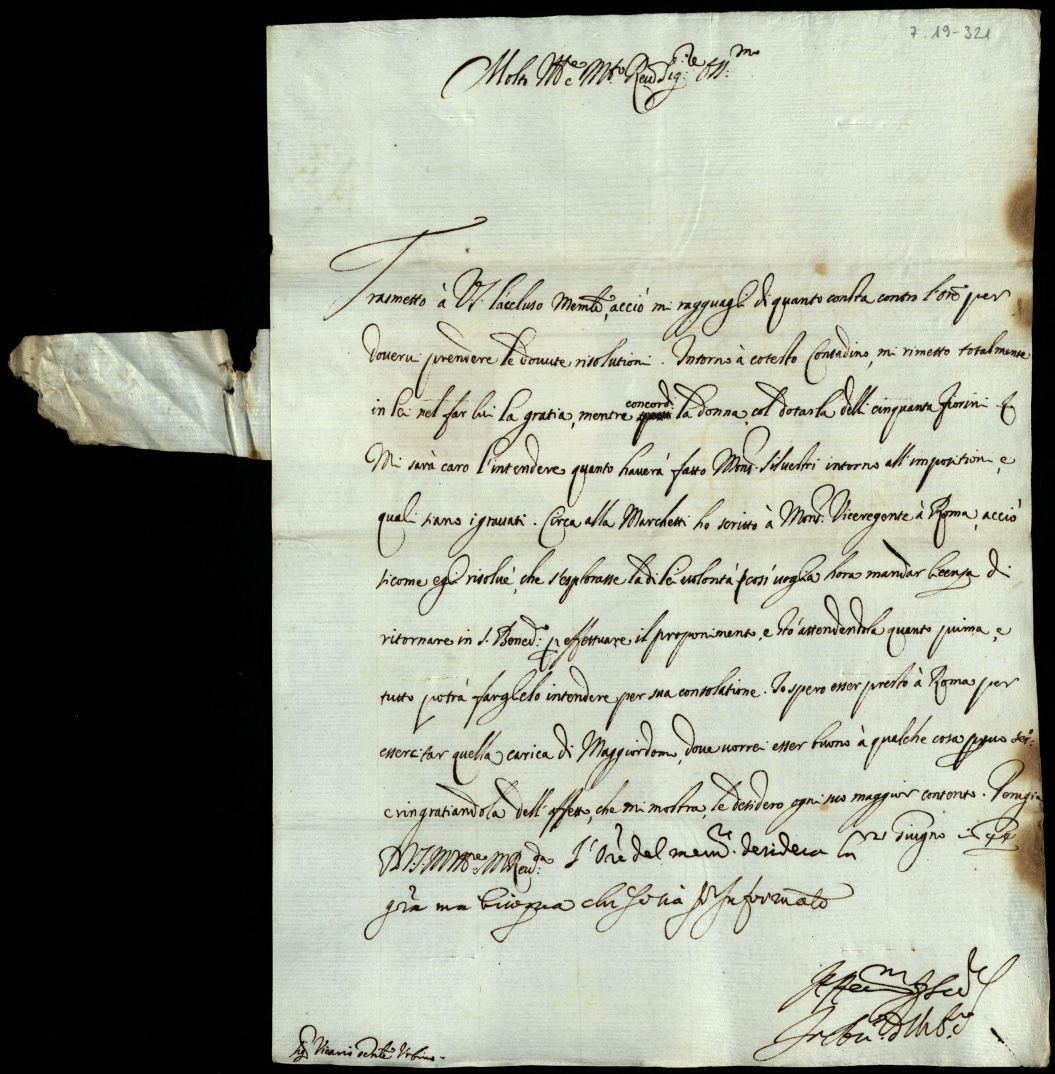 7.19-321
Molto Ill.re e M.to Rev.do Sig.re Oss.mo
Trasmetto à V.S. l'accluso Mem.le, acciò mi ragguagli di quanto consta contro l'Ore per
dovervi prendere le dovute risolutioni. Intorno à cotesto Contadino, mi rimetto totalmente
in lei nel far lui la gratia, mentre concordi la donna, col dotarla delli cinquanta fiorini
Mi sarà caro l'intendere quanto haverà fatto Mons.r Silvestri intorno all'impositioni, e
quali siano i gravati. Circa alla Marchetti ho scritto à Mons.r Viceregente à Roma, acciò
sicome egli risolvé, che s'esplorasse la di lei volontà, così voglia hora mandar licenza di
ritornare in S. Bened.o p effettuare il proponimento, e stò attendendola quanto prima, e
tutto potrà farglielo intendere per sua consolatione. Io spero esser presto à Roma per
essercitar quella carica di Maggiordomo, dove vorrei esser buono à qualche cosa per suo ser.o
e ringratiandola dell'affetto, che mi mostra, le desidero ogni suo maggior contento. Perugia
D.V.S. M. Ill.re e M. Rev.da L'Ore del mem.le desidera la
Giugno
gra ma bisogna chi Io sia Informato
Aff.mo
d'Urb.o
Sig.r Vicario Gen.le Urbino.